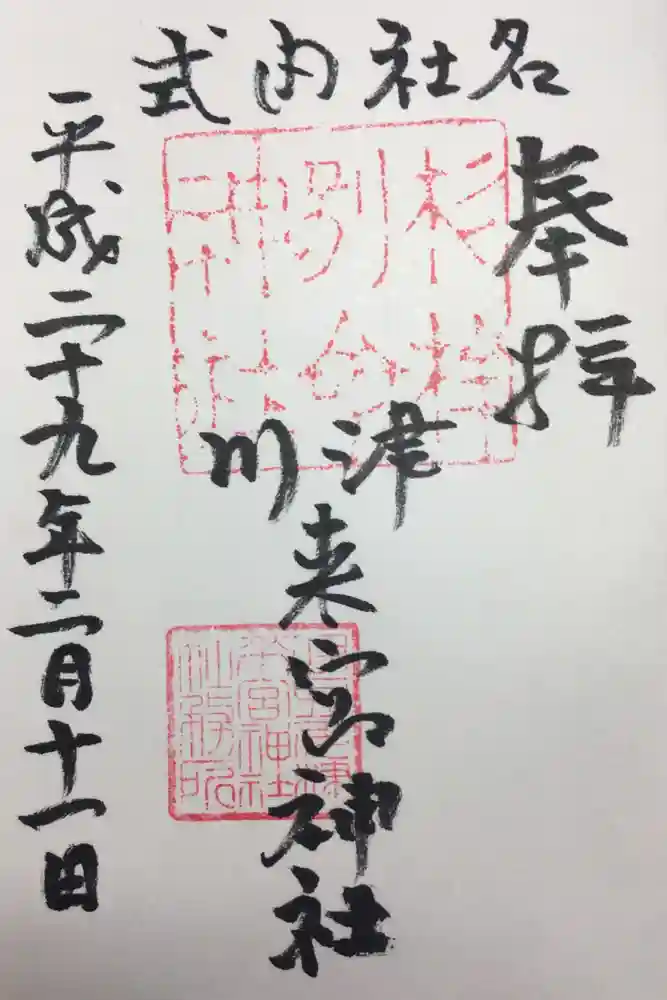 式内社名
奉拝
杉桙
別命
神社
川津
来宮神社
来宮神社
社務所
平成二十九年二月十一日